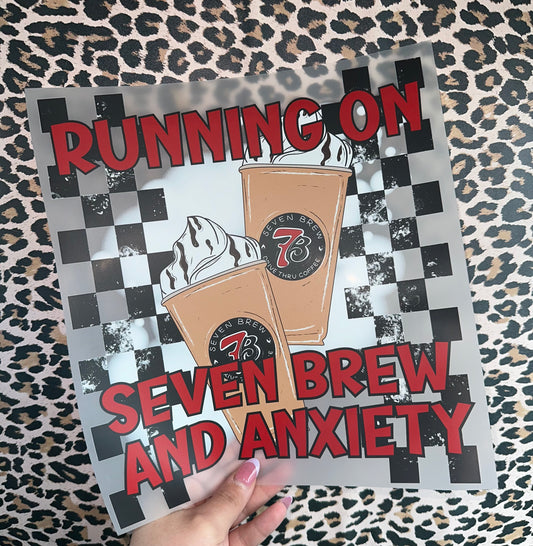 RUNNING ON
SEVEN BREW
7B
VE THRU COFFEE
SEVEN BREW
7B
SEVEN BREW
AND ANXIETY